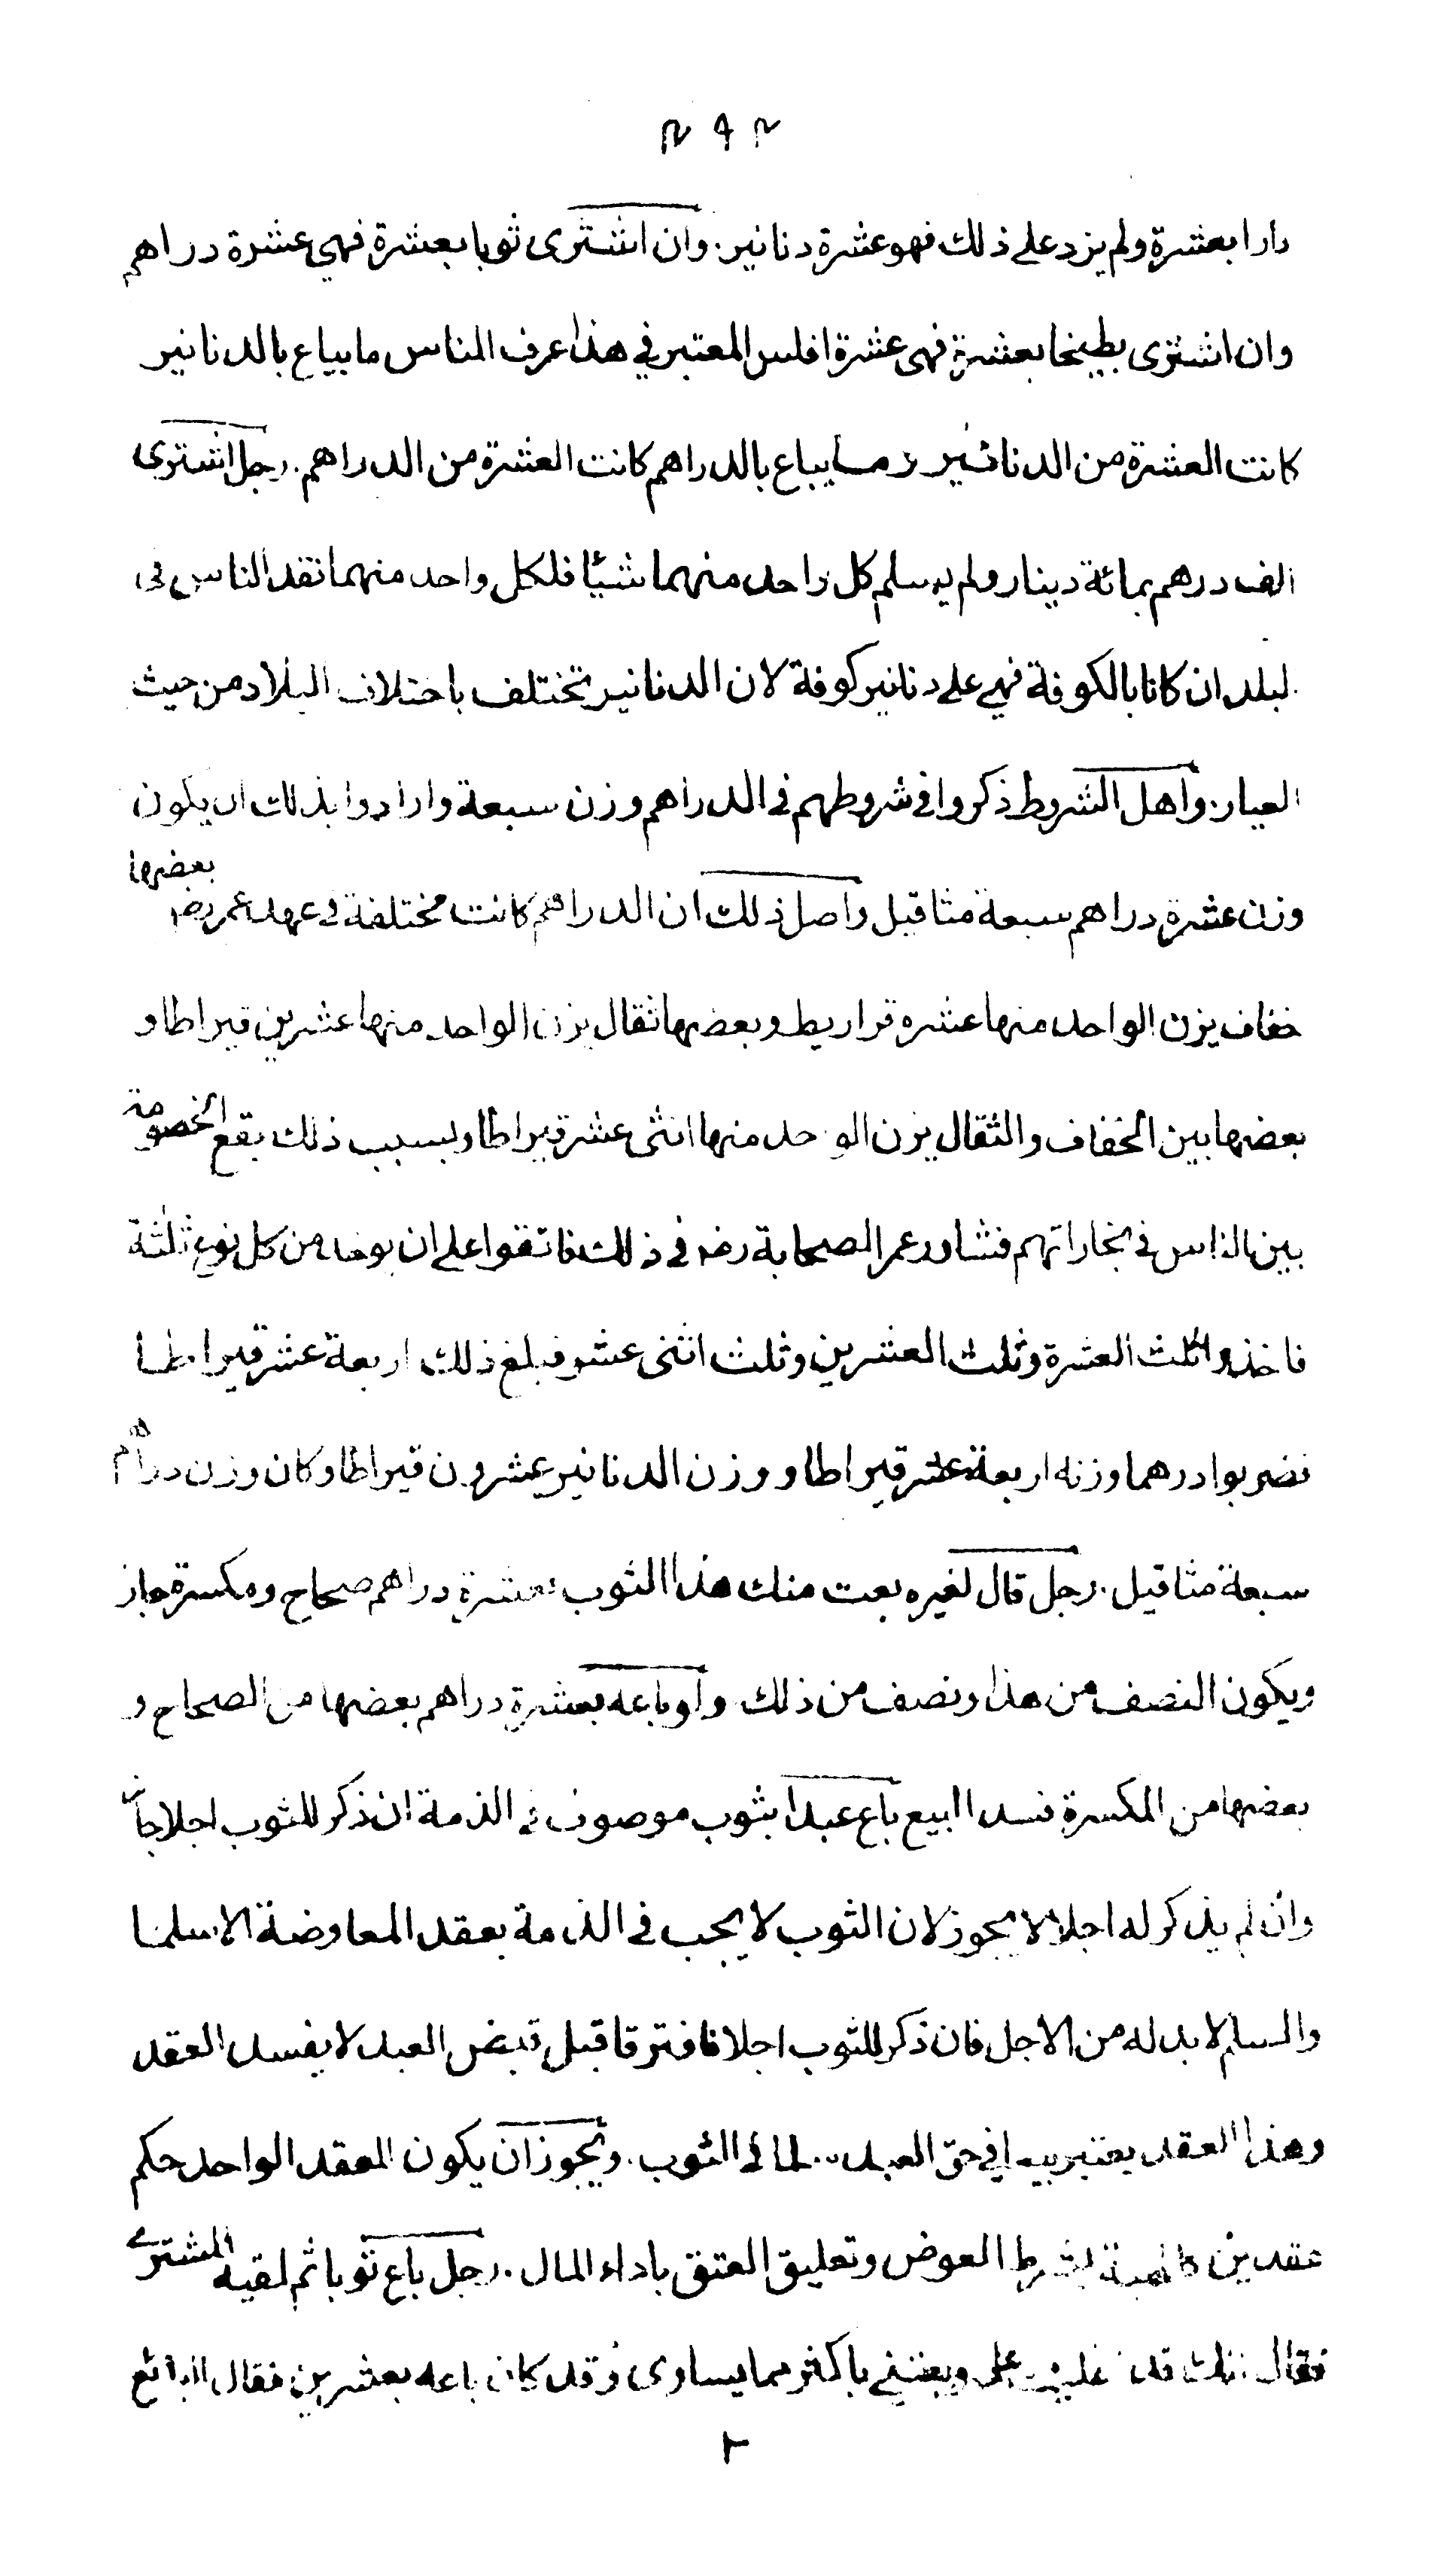 ٢٩٢
دارا بعشرة ولم يزد على ذلك فهو عشرة دنانير. وان اشترى ثوبا بعشرة فهي عشرة دراهم
وان اشترى بطيخا بعشرة فهى عشرة افلس المعتبر في هذا عرف الناس ما يباع بالدنانير
كانت العشرة من الدنانير وما يباع بالدراهم كانت العشرة من الدراهم. رجل اشترى
الف درهم بمائة دينار ولم يسلم كل واحد منهما شيئا فلكل واحد منهما نقد الناس فى
البلد ان كانا بالكوفة فهي على دنانير كوفة لان الدنانير تختلف باختلاف البلاد من حيث
العيار. واهل الشروط ذكروا في شروطهم في الدراهم وزن سبعة وارادوا بذلك ان يكون
وزن عشرة دراهم سبعة مثاقيل واصل ذلك ان الدراهم كانت مختلفة في عهد عمر رضـ بعضها
خفاف يزن الواحد منها عشرة قراريط وبعضها ثقال يزن الواحد منها عشرين قيراطا و
بعضها بين الخفاف والثقال يزن الواحد منها اثنى عشر قيراطا وبسبب ذلك يقع الخصومة
بين الناس في تجاراتهم فشاور عمر الصحابة رضـ في ذلك فاتفقوا على ان يوخذ من كل نوع ثلثة
فاخذوا ثلث العشرة وثلث العشرين وثلث اثنى عشر فبلغ ذلك اربعة عشر قيراطا
فضربوا درهما وزنه اربعة عشر قيراطا ووزن الدنانير عشرون قيراطا وكان وزن دراهم
سبعة مثاقيل. رجل قال لغيره بعت منك هذا الثوب بعشرة دراهم صحاح ومكسرة جاز
ويكون النصف من هذا ونصف من ذلك ولو باعه بعشرة دراهم بعضها من الصحاح و
بعضها من المكسرة فسد البيع باع عبدا بثوب موصوف في الذمة ان ذكر للثوب اجلا جاز
وان لم يذكر له اجلا لا يجوز لان الثوب لا يجب في الذمة بعقد المعاوضة الا سلما
والسلم لا بد له من الاجل فان ذكر للثوب اجلا فافترقا قبل قبض العبد لا يفسد العقد
وهذا العقد يعتبر بيعا في حق العبد سلما في الثوب. ويجوز ان يكون العقد الواحد حكم
عقدين كالهبة بشرط العوض وتعليق العتق باداء المال. رجل باع ثوبا ثم لقيه المشترى
فقال انك قد غليت علي وبعتني باكثر مما يساوى وقد كان باعه بعشرين فقال البائع
٢